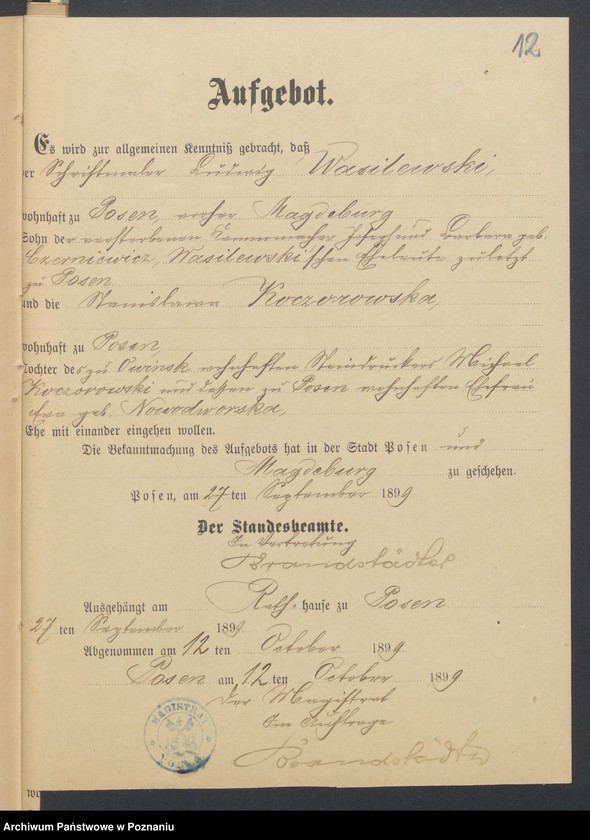 12
Aufgebot.
Es wird zur allgemeinen Kenntniß gebracht, daß
der Schriftmaler Ludwig Wasilewski,
wohnhaft zu Posen, vorher Magdeburg
Sohn der verstorbenen Kammmacher Joseph und Barbara geb.
Czerniewicz, Wasilewski'schen Eheleute zuletzt
zu Posen
und die Stanislawa Koczorowska,
wohnhaft zu Posen,
Tochter des zu Owinsk wohnhaften Steindruckers Michael
Koczorowski und dessen zu Posen wohnhaften Ehefrau
Eva geb. Nowodworska,
Ehe mit einander eingehen wollen.
Die Bekanntmachung des Aufgebots hat in der Stadt Posen und
Magdeburg zu geschehen.
Posen, am 27 ten September 1899
Der Standesbeamte.
In Vertretung
Brandstädter
Ausgehängt am Rathhause zu Posen
27 ten September 1899
Abgenommen am 12 ten October 1899
Posen am 12 ten October 1899
Der Magistrat
Im Auftrage
Brandstädter
MAGISTRAT
POSEN
Archiwum Państwowe w Poznaniu